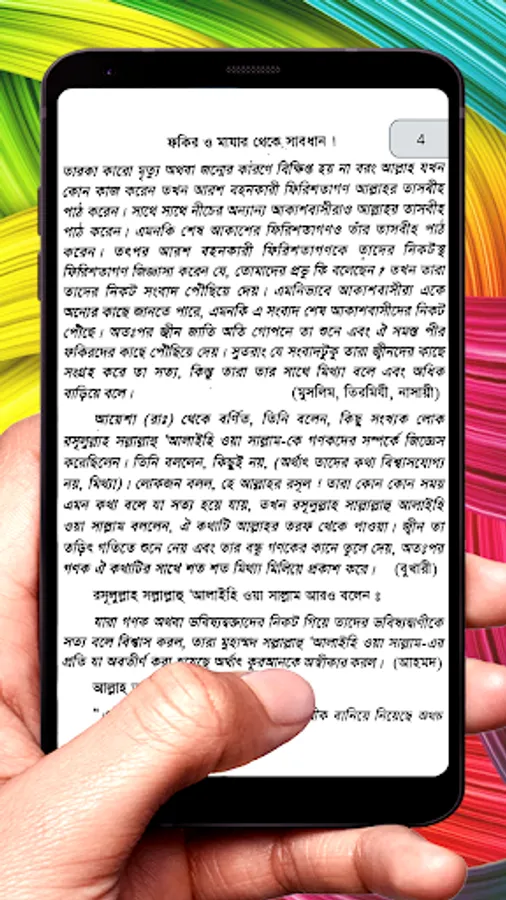 ফকির ও মাযার থেকে সাবধান !
4
তারকা কারো মৃত্যু অথবা জন্মের কারণে বিক্ষিপ্ত হয় না বরং আল্লাহ যখন
কোন কাজ করেন তখন আরশ বহনকারী ফিরিশতাগণ আল্লাহর তাসবীহ
পাঠ করেন। সাথে সাথে নীচের অন্যান্য আকাশবাসীরাও আল্লাহর তাসবীহ
পাঠ করেন। এমনকি শেষ আকাশের ফিরিশতাগণও তাঁর তাসবীহ পাঠ
করেন। তৎপর আরশ বহনকারী ফিরিশতাগণকে তাদের নিকটস্থ
ফিরিশতাগণ জিজ্ঞাসা করেন যে, তোমাদের প্রভু কি বলেছেন? তখন তারা
তাদের নিকট সংবাদ পৌছিয়ে দেয়। এমনিভাবে আকাশবাসীরা একে
অন্যের কাছে জানতে পারে, এমনকি এ সংবাদ শেষ আকাশবাসীদের নিকট
পৌছে। অতঃপর জ্বীন জাতি অতি গোপনে তা শুনে এবং ঐ সমস্ত পীর
ফকিরদের কাছে পৌছিয়ে দেয়। সুতরাং যে সংবাদটুকু তারা জ্বীনদের কাছে
সংগ্রহ করে তা সত্য, কিন্তু তারা তার সাথে মিথ্যা বলে এবং অধিক
বাড়িয়ে বলে। (মুসলিম, তিরমিযী, নাসায়ী)
আয়েশা (রাঃ) থেকে বর্ণিত, তিনি বলেন, কিছু সংখ্যক লোক
রসূলুল্লাহ সল্লাল্লাহু 'আলাইহি ওয়া সাল্লাম-কে গণকদের সম্পর্কে জিজ্ঞেস
করেছিলেন। তিনি বললেন, কিছুই নয়, (অর্থাৎ তাদের কথা বিশ্বাসযোগ্য
নয়, মিথ্যা)। লোকজন বলল, হে আল্লাহর রসূল! তারা কোন কোন সময়
এমন কথা বলে যা সত্য হয়ে যায়, তখন রসূলুল্লাহ সাল্লাল্লাহু আলাইহি
ওয়া সাল্লাম বললেন, ঐ কথাটি আল্লাহর তরফ থেকে পাওয়া। জ্বীন তা
তড়িৎ গতিতে শুনে নেয় এবং তার বন্ধু গণকের কানে তুলে দেয়, অতঃপর
গণক ঐ কথাটির সাথে শত শত মিথ্যা মিলিয়ে প্রকাশ করে। (বুখারী)
রসূলুল্লাহ সল্লাল্লাহু 'আলাইহি ওয়া সাল্লাম আরও বলেন ঃ
যারা গণক অথবা ভবিষ্যদ্বক্তাদের নিকট গিয়ে তাদের ভবিষ্যদ্বাণীকে
সত্য বলে বিশ্বাস করল, তারা মুহাম্মদ সল্লাল্লাহু 'আলাইহি ওয়া সাল্লাম-এর
প্রতি যা অবতীর্ণ করা হয়েছে অর্থাৎ কুরআনকে অস্বীকার করল। (আহমদ)
আল্লাহ
বানিয়ে নিয়েছে অথচ